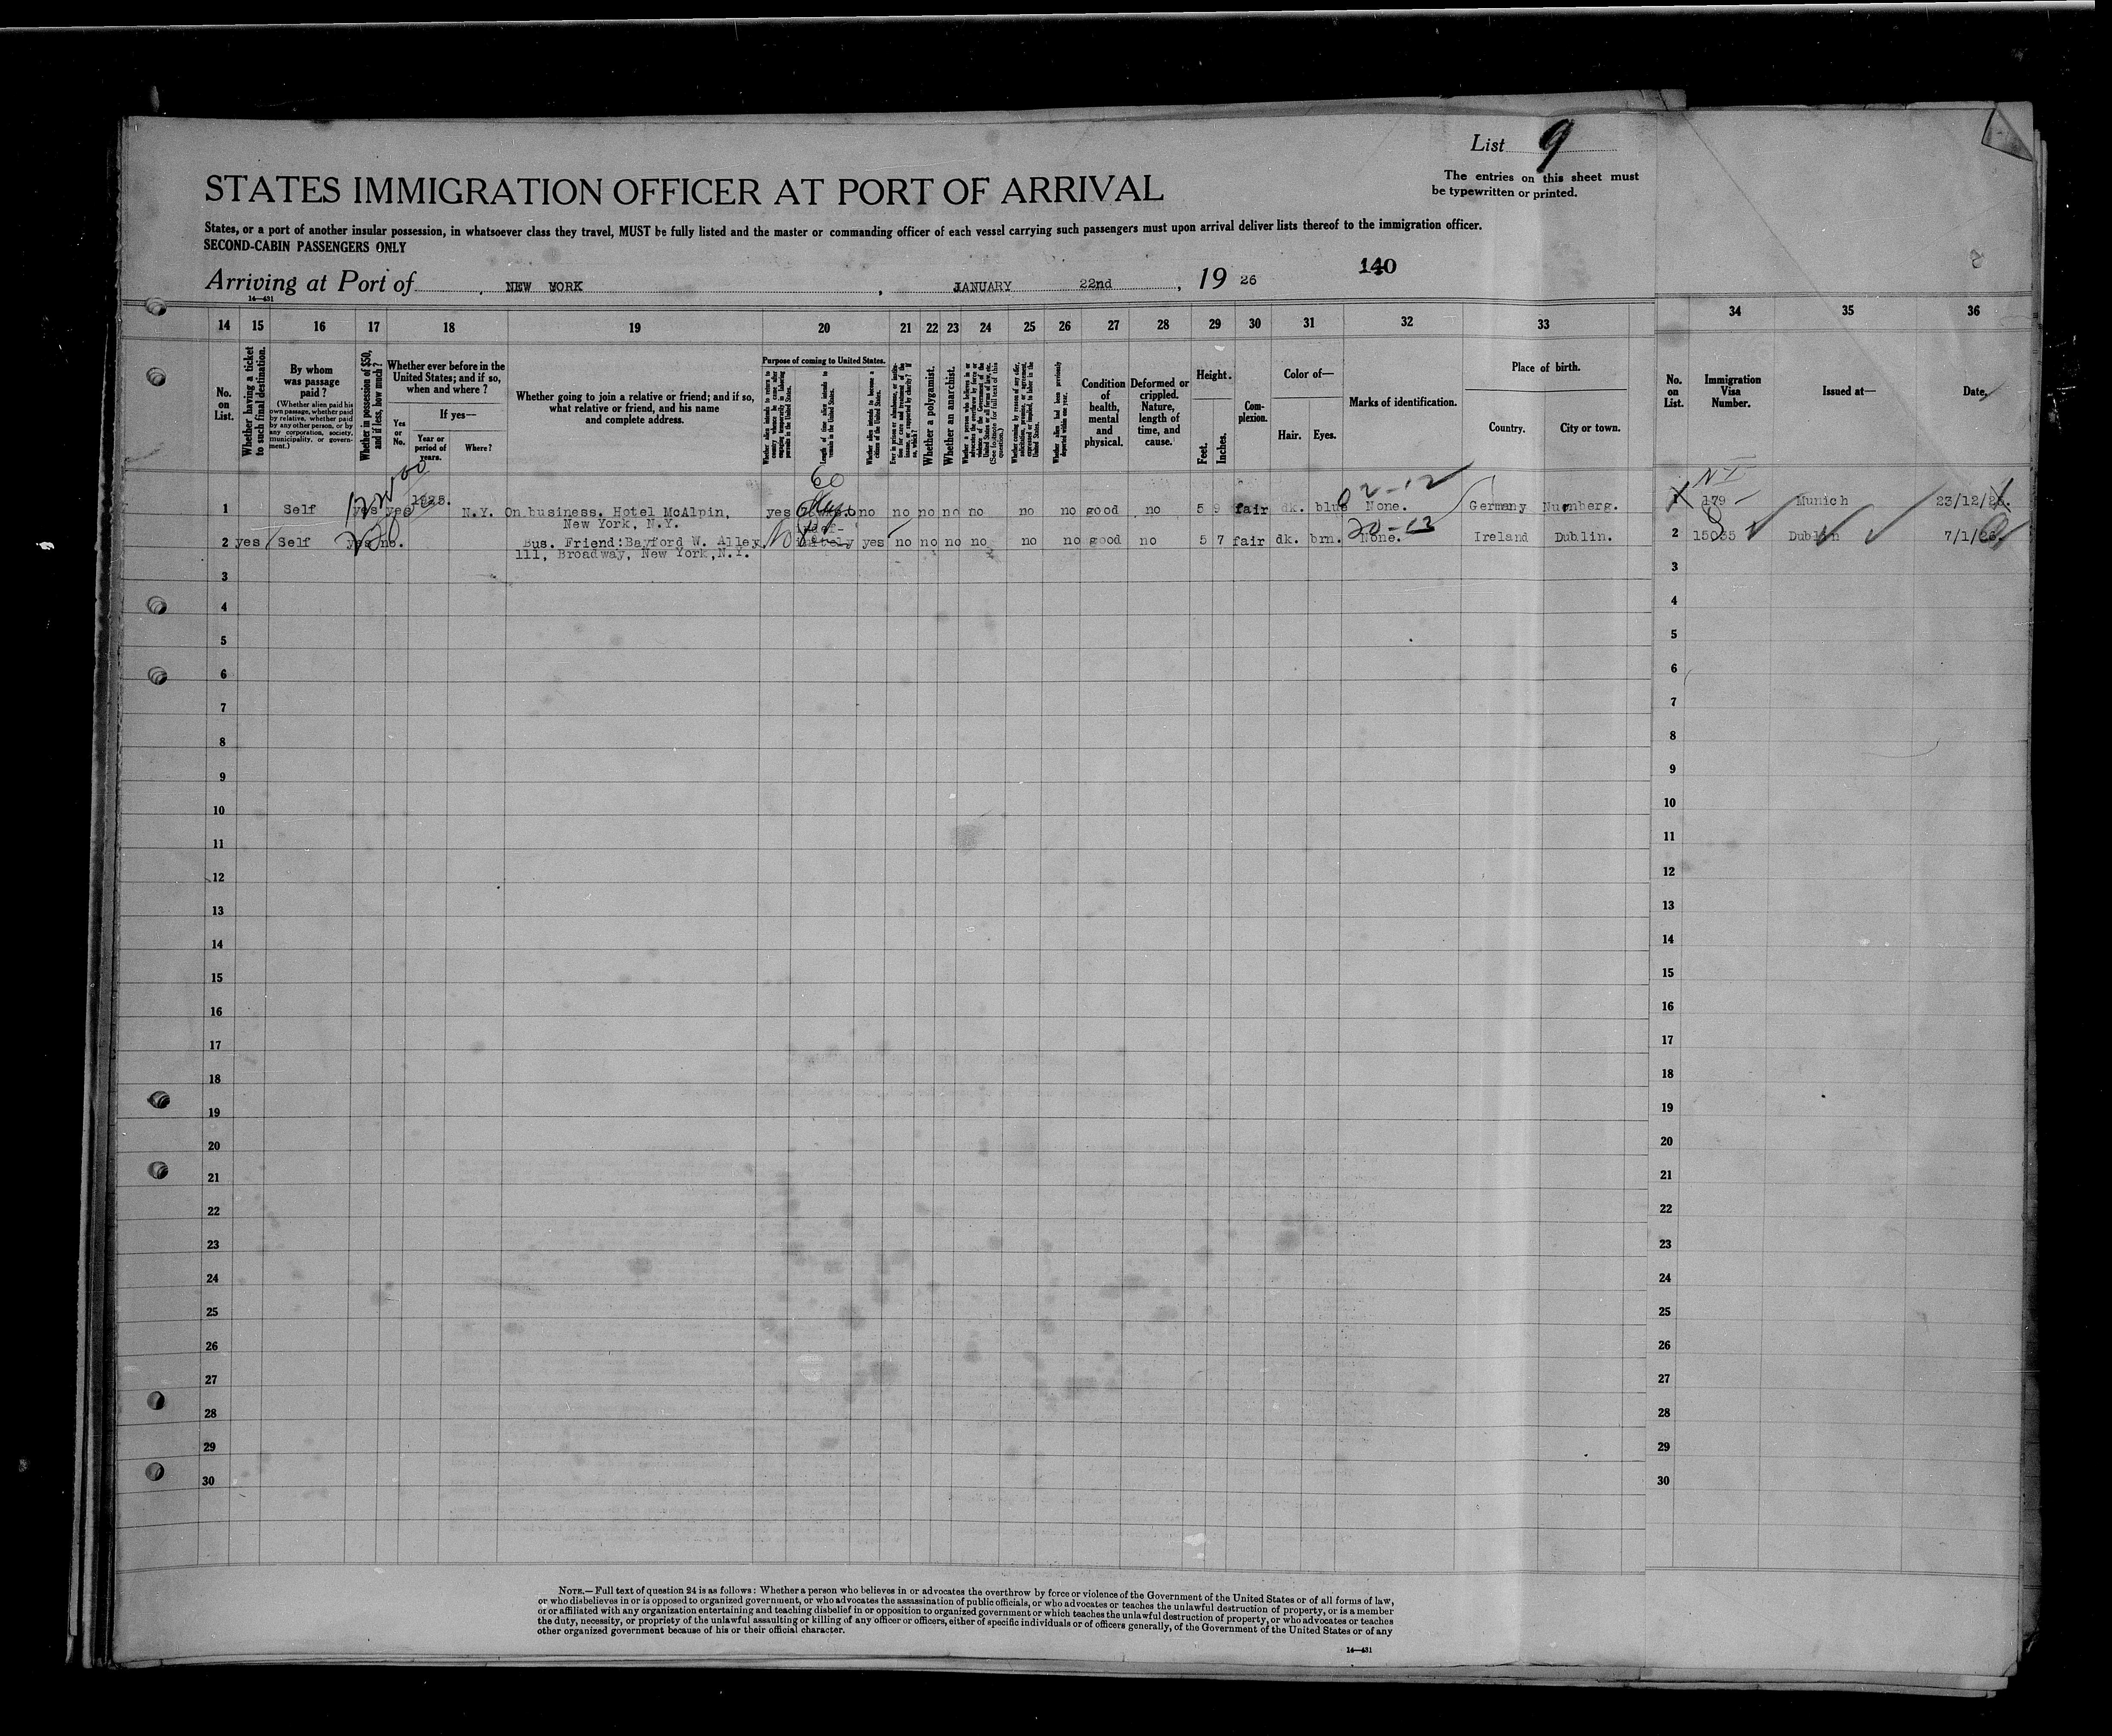 List 9
The entries on this sheet must
be typewritten or printed.
STATES IMMIGRATION OFFICER AT PORT OF ARRIVAL
States, or a port of another insular possession, in whatsoever class they travel, MUST be fully listed and the master or commanding officer of each vessel carrying such passengers must upon arrival deliver lists thereof to the immigration officer.
SECOND-CABIN PASSENGERS ONLY
140
Arriving at Port of NEW YORK, JANUARY 22nd, 19 26
14—431
14 15 16 17 18 19 20 21 22 23 24 25 26 27 28 29 30 31 32 33 34 35 36
No. on List.
Whether having a ticket to such final destination.
By whom was passage paid?
(Whether alien paid his own passage, whether paid by relative, whether paid by any other person, or by any corporation, society, municipality, or government.)
Whether in possession of $50, and if less, how much?
Whether ever before in the United States; and if so, when and where?
If yes—
Yes or No.
Year or period of years.
Where?
Whether going to join a relative or friend; and if so, what relative or friend, and his name and complete address.
Purpose of coming to United States.
Whether alien intends to return to country whence he came after engaging temporarily in laboring pursuits in the United States.
Length of time alien intends to remain in the United States.
Whether alien intends to become a citizen of the United States.
Ever in prison or almshouse, or institution for care and treatment of the insane, or supported by charity? If so, which?
Whether a polygamist.
Whether an anarchist.
Whether a person who believes in or advocates the overthrow by force or violence of the Government of the United States or all forms of law, etc. (See footnote for full text of this question.)
Whether coming by reason of any offer, solicitation, promise, or agreement, expressed or implied, to labor in the United States.
Whether alien had been previously deported within one year.
Condition of health, mental and physical.
Deformed or crippled. Nature, length of time, and cause.
Height.
Feet. Inches.
Complexion.
Color of—
Hair. Eyes.
Marks of identification.
Place of birth.
Country. City or town.
No. on List.
Immigration Visa Number.
Issued at—
Date.
60
02-12
NI
1 Self yes yes 1925. N.Y. On business. Hotel McAlpin, yes no no no no no no no good no 5 9 fair dk. blue None. Germany Nurnberg. 1 179 Munich 23/12/25.
New York, N.Y.
20-13
2 yes Self yes no. Bus. Friend:Bayford W. Alley. No yes no no no no no no good no 5 7 fair dk. brn. None. Ireland Dublin. 2 15035 Dublin 7/1/26.
111, Broadway, New York,N.Y.
3 3
4 4
5 5
6 6
7 7
8 8
9 9
10 10
11 11
12 12
13 13
14 14
15 15
16 16
17 17
18 18
19 19
20 20
21 21
22 22
23 23
24 24
25 25
26 26
27 27
28 28
29 29
30 30
NOTE.—Full text of question 24 is as follows: Whether a person who believes in or advocates the overthrow by force or violence of the Government of the United States or of all forms of law,
or who disbelieves in or is opposed to organized government, or who advocates the assassination of public officials, or who advocates or teaches the unlawful destruction of property, or is a member
or or affiliated with any organization entertaining and teaching disbelief in or opposition to organized government or which teaches the unlawful destruction of property, or who advocates or teaches
the duty, necessity, or propriety of the unlawful assaulting or killing of any officer or officers, either of specific individuals or of officers generally, of the Government of the United States or of any
other organized government because of his or their official character.
14—431